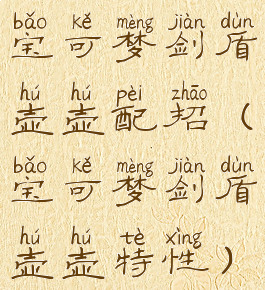 bǎo kě mèng jiàn dùn
宝可梦剑盾
hú hú pèi zhāo
壶壶配招（
bǎo kě mèng jiàn dùn
宝可梦剑盾
hú hú tè xìng
壶壶特性）